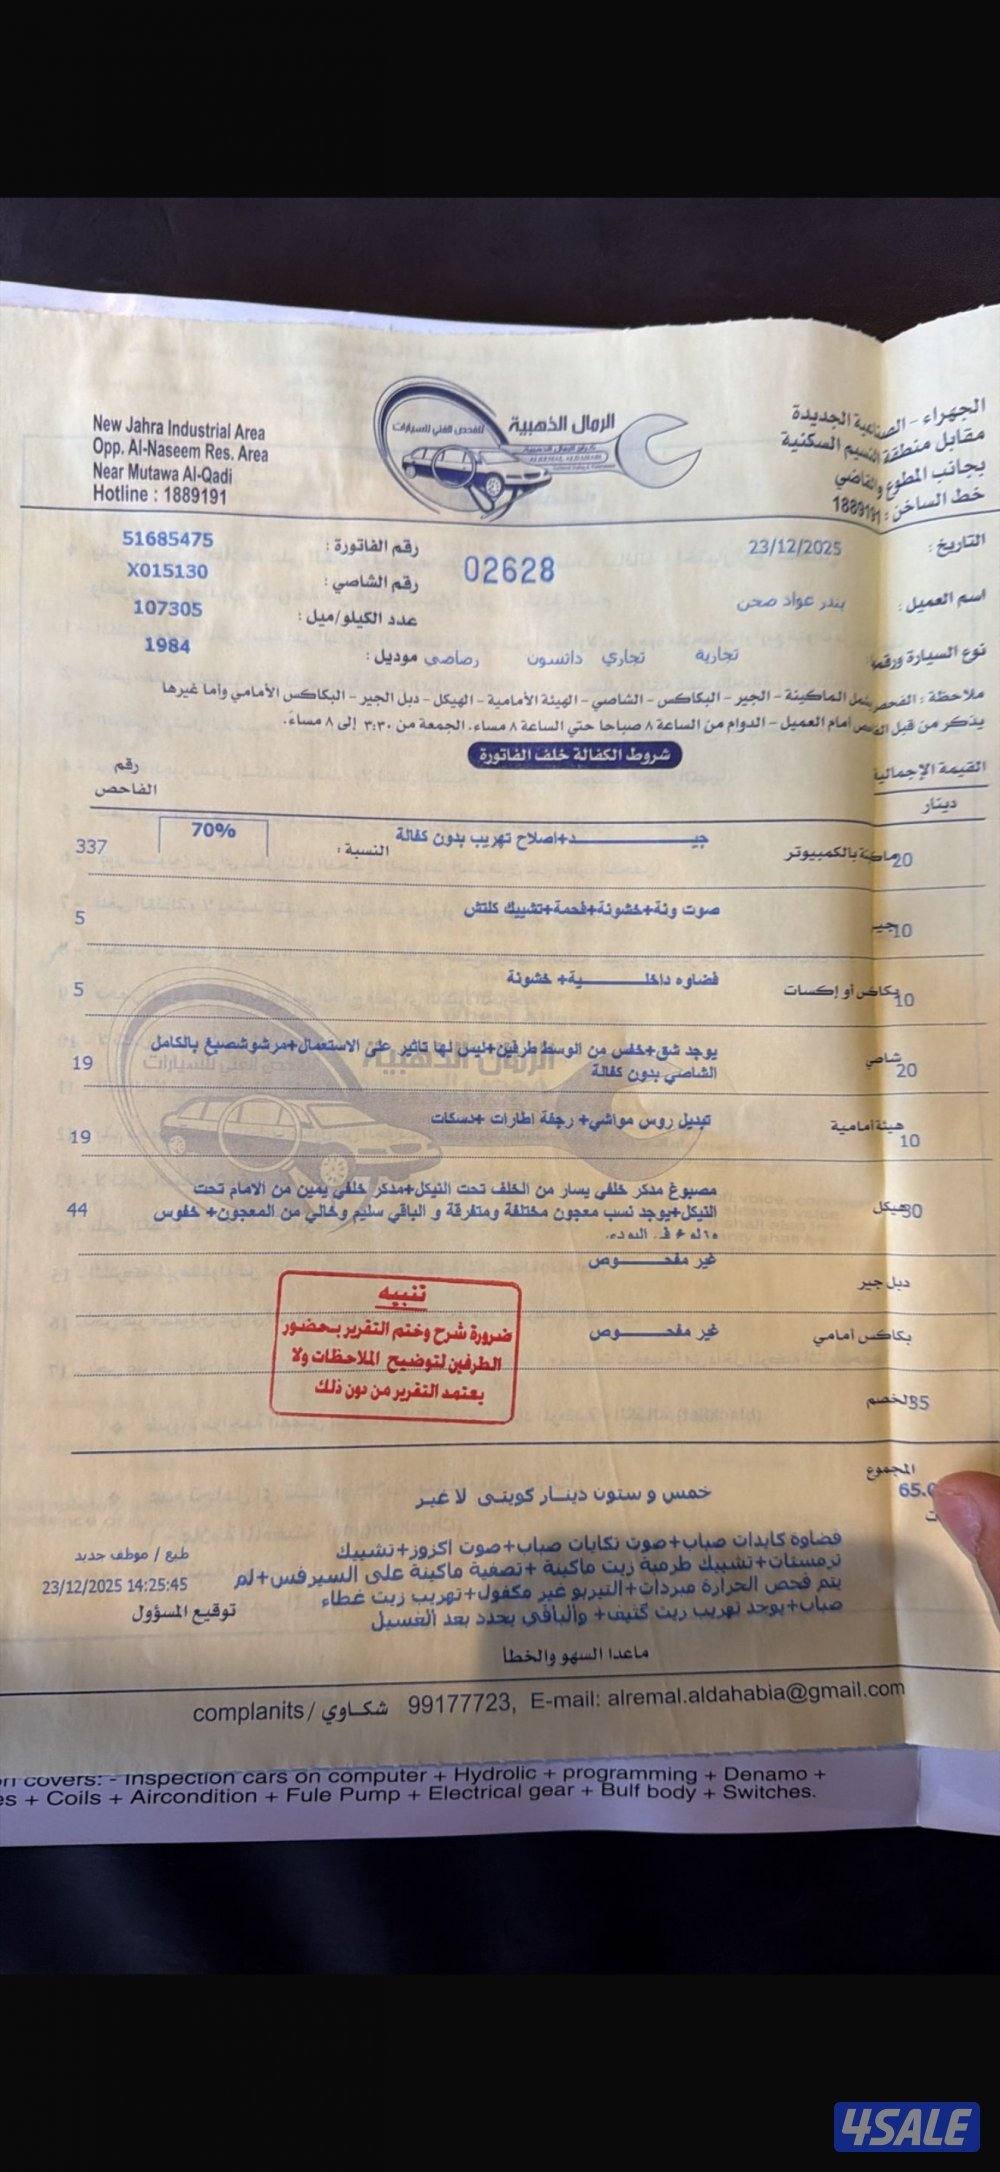 New Jahra Industrial Area
Opp. Al-Naseem Res. Area
Near Mutawa Al-Qadi
Hotline : 1889191
الرمال الذهبية
للفحص الفني للسيارات
الجهراء - الصناعية الجديدة
مقابل منطقة النسيم السكنية
بجانب المطوع والقاضي
خط الساخن : 1889191
التاريخ : 23/12/2025
02628
رقم الفاتورة : 51685475
رقم الشاصي : X015130
اسم العميل : بندر عواد صحن
عدد الكيلو/ميل : 107305
نوع السيارة ورقمها تجارية تجاري داتسون رصاصي موديل : 1984
ملاحظة : الفحص يشمل الماكينة - الجير - البكاكس - الشاصي - الهيئة الأمامية - الهيكل - دبل الجير - البكاكس الأمامي وأما غيرها
يذكر من قبل الفاحص أمام العميل - الدوام من الساعة ٨ صباحا حتي الساعة ٨ مساء، الجمعة من ٣:٣٠ إلى ٨ مساءً.
شروط الكفالة خلف الفاتورة
القيمة الإجمالية
دينار
رقم
الفاحص
ماكينة بالكمبيوتر 20 جيـــد+اصلاح تهريب بدون كفالة النسبة : 70% 337
جير 10 صوت ونة+خشونة+فحمة+تشييك كلتش 5
بكاكس أو إكسات 10 فضاوه داخلـــية+ خشونة 5
شاصي 20 يوجد شق+خفس من الوسط طرفين+ليس لها تاثير على الاستعمال+مرشوشصبغ بالكامل
الشاصي بدون كفالة 19
هيئة أمامية 10 تبديل روس مواشي+ رجفة اطارات +دسكات 19
هيكل 30 مصبوغ مدكر خلفي يسار من الخلف تحت النيكل+مدكر خلفي يمين من الامام تحت
النيكل+يوجد نسب معجون مختلفة ومتفرقة و الباقي سليم وخالي من المعجون+ خفوس 44
دبل جير غير مفحـــوص
بكاكس أمامي غير مفحـــوص
تنبيه
ضرورة شرح وختم التقرير بحضور
الطرفين لتوضيح الملاحظات ولا
يعتمد التقرير من دون ذلك
الخصم 35
المجموع
65.0
خمس و ستون دينـار كويتي لا غير
فضاوة كايدات صباب+صوت تكايات صباب+صوت اكزوز+تشييك
ترمستات+تشييك طرمبة زيت ماكينة +تصفية ماكينة على السيرفس+لم
يتم فحص الحرارة مبردات+التيربو غير مكفول+تهريب زيت غطاء
صباب+يوجد تهريب زيت كثيف+ والباقي يحدد بعد الغسيل
طبع / موظف جديد
23/12/2025 14:25:45
توقيع المسؤول
ماعدا السهو والخطأ
complanits / شكـاوي 99177723, E-mail: alremal.aldahabia@gmail.com
covers: - Inspection cars on computer + Hydrolic + programming + Denamo +
+ Coils + Aircondition + Fule Pump + Electrical gear + Bulf body + Switches.
4SALE